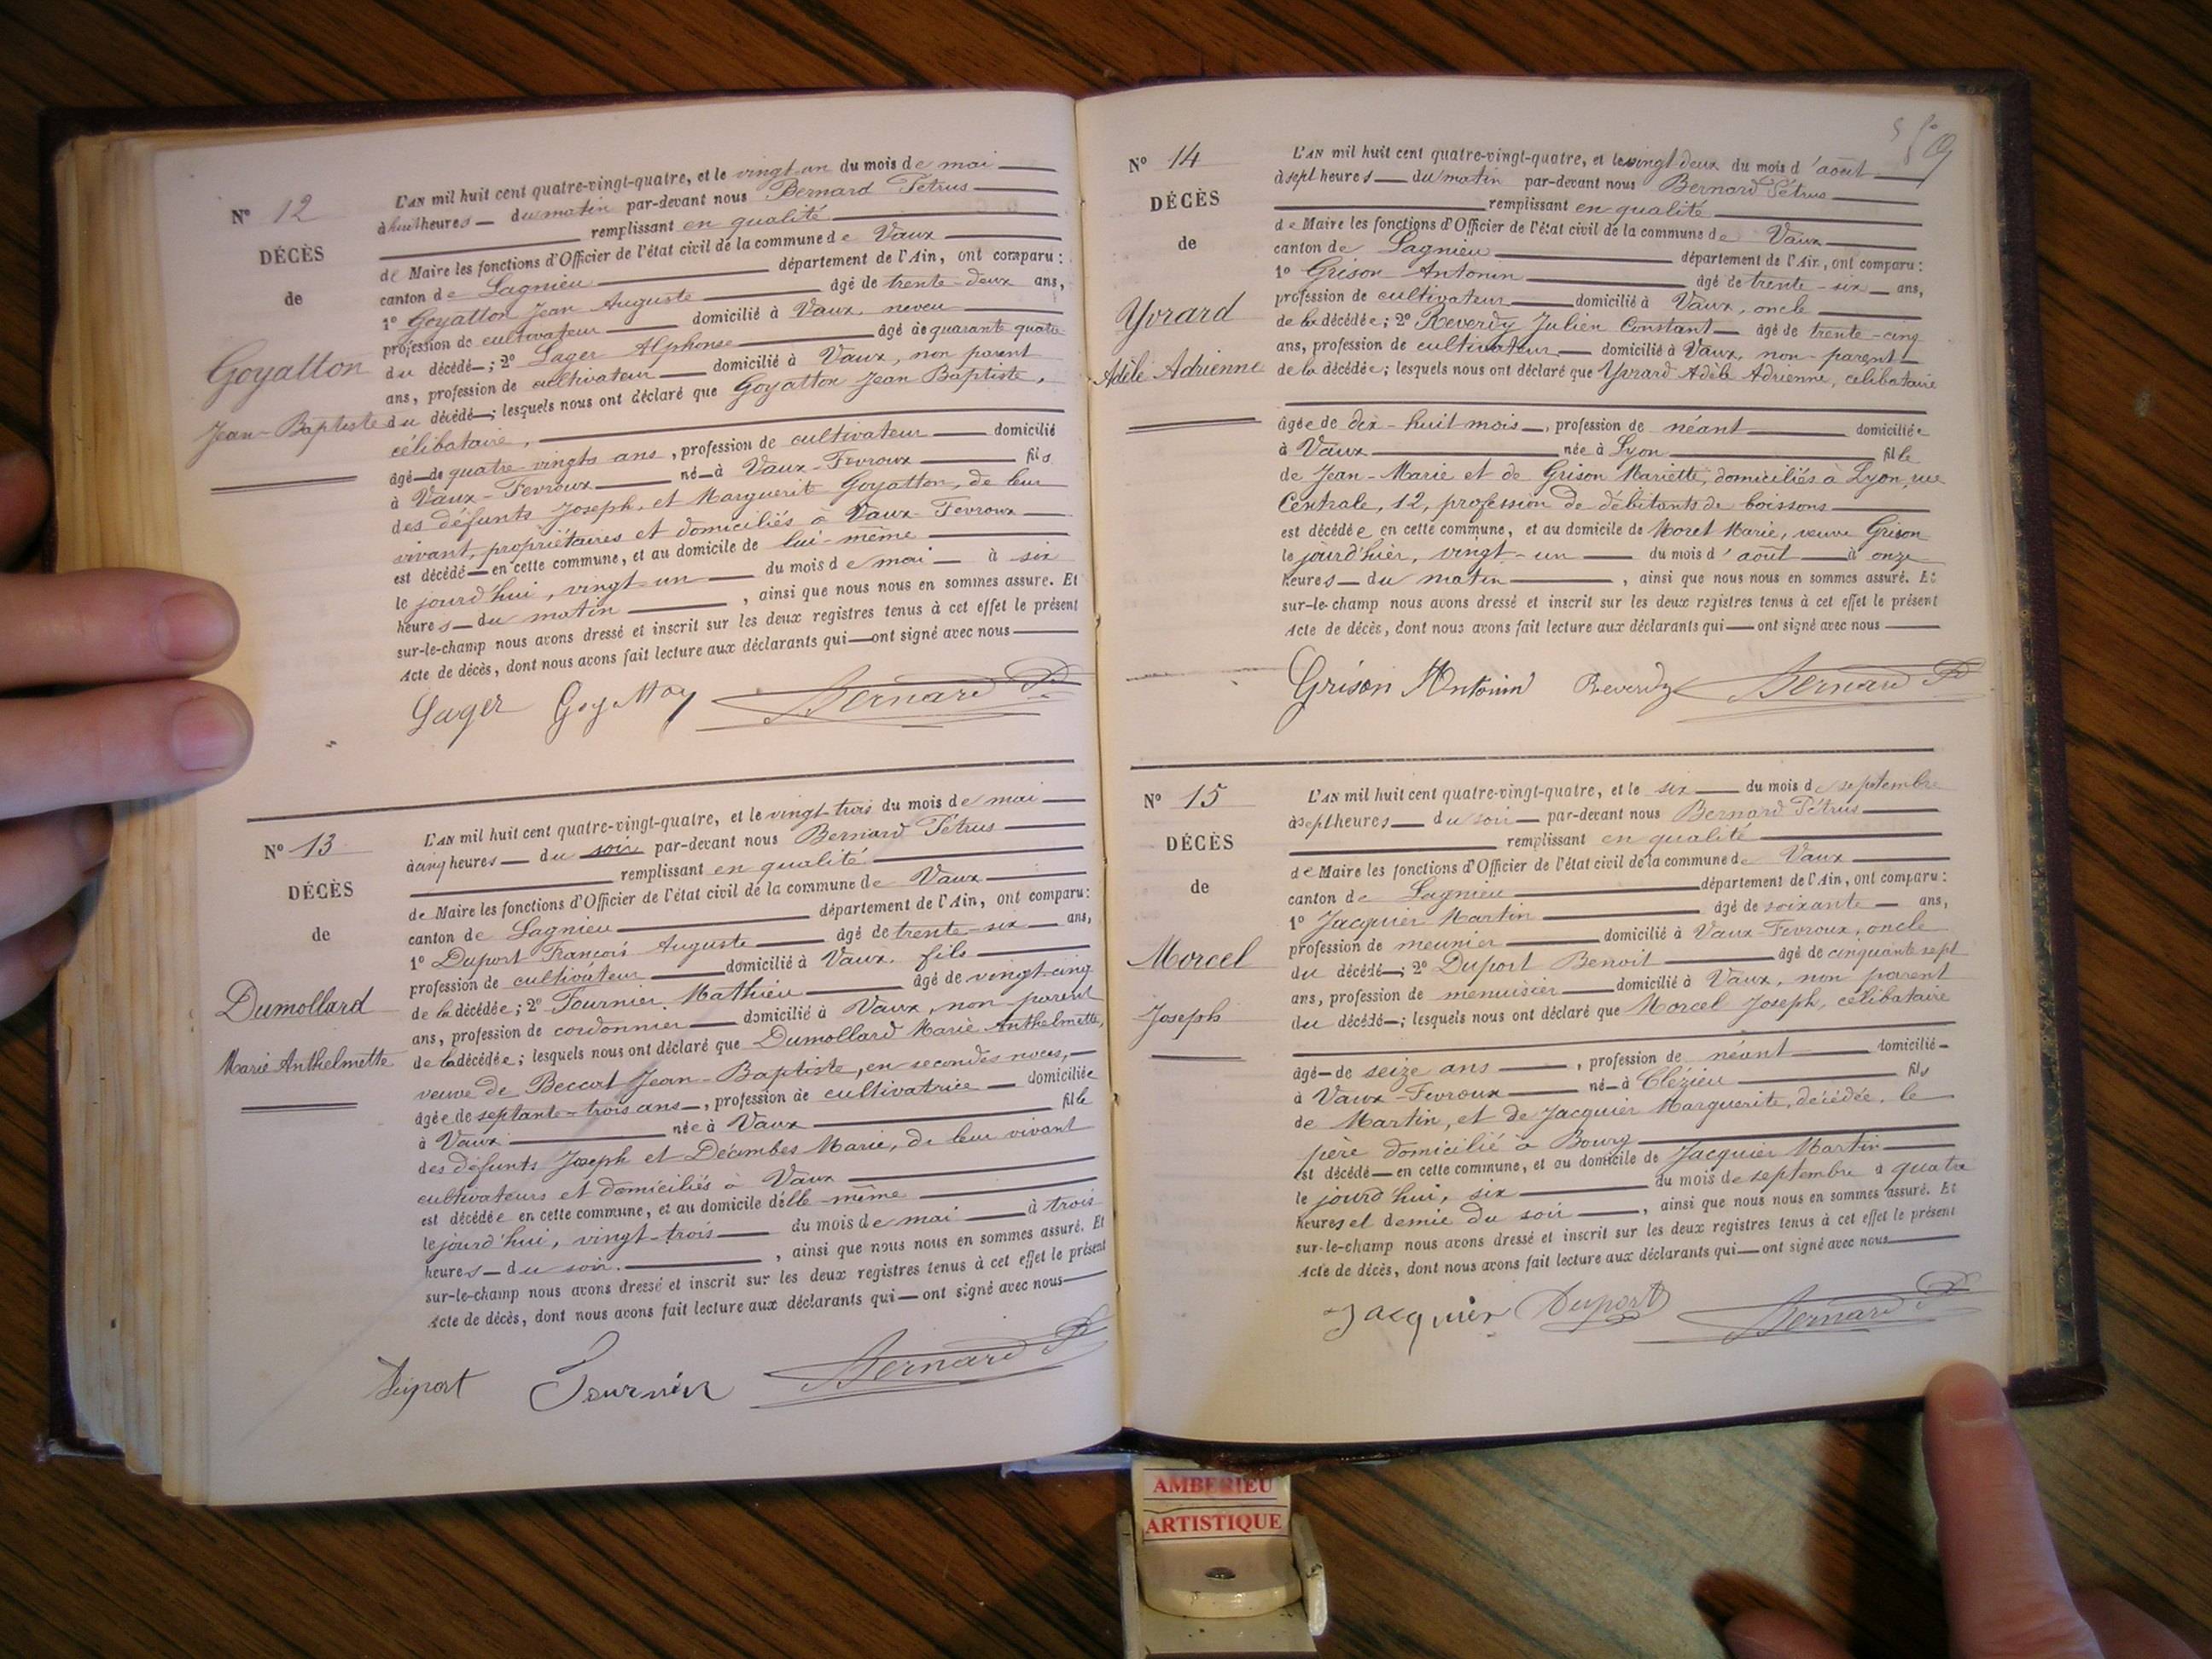 N° 12
DÉCÈS
de
Goyatton
Jean-Baptiste
L'AN mil huit cent quatre-vingt-quatre, et le vingt un du mois de mai
à huit heures du matin par-devant nous Bernard Pétrus
remplissant en qualité
de Maire les fonctions d'Officier de l'état civil de la commune de Vaux
canton de Lagnieu département de l'Ain, ont comparu :
1° Goyatton Jean Auguste âgé de trente-deux ans,
profession de cultivateur domicilié à Vaux, neveu
du décédé ; 2° Lager Alphonse âgé de quarante quatre
ans, profession de cultivateur domicilié à Vaux, non parent
du décédé ; lesquels nous ont déclaré que Goyatton Jean Baptiste,
célibataire,
âgé de quatre-vingts ans, profession de cultivateur domicilié
à Vaux-Fevroux né à Vaux-Fevroux fils
des défunts Joseph, et Marguerite Goyatton, de leur
vivant, propriétaires et domiciliés à Vaux-Fevroux
est décédé en cette commune, et au domicile de lui-même
le jourd'hui, vingt-un du mois de mai à six
heures du matin, ainsi que nous nous en sommes assuré. Et
sur-le-champ nous avons dressé et inscrit sur les deux registres tenus à cet effet le présent
Acte de décès, dont nous avons fait lecture aux déclarants qui ont signé avec nous
Lager Bernard P
N° 13
DÉCÈS
de
Dumollard
Marie Anthelmette
L'AN mil huit cent quatre-vingt-quatre, et le vingt trois du mois de mai
à cinq heures du soir par-devant nous Bernard Pétrus
remplissant en qualité
de Maire les fonctions d'Officier de l'état civil de la commune de Vaux
canton de Lagnieu département de l'Ain, ont comparu :
1° Duport François Auguste âgé de trente-six ans,
profession de cultivateur domicilié à Vaux, fils
de la décédée ; 2° Fournier Mathieu âgé de vingt-cinq
ans, profession de cordonnier domicilié à Vaux, non-parent
de la décédée ; lesquels nous ont déclaré que Dumollard Marie Anthelmette,
veuve de Beccat Jean-Baptiste, en secondes noces,
âgée de septante-trois ans, profession de cultivatrice domiciliée
à Vaux née à Vaux fille
des défunts Joseph et Décombes Marie, de leur vivant
cultivateurs et domiciliés à Vaux
est décédée en cette commune, et au domicile d'elle-même
le jourd'hui, vingt-trois du mois de mai à trois
heures du soir, ainsi que nous nous en sommes assuré. Et
sur-le-champ nous avons dressé et inscrit sur les deux registres tenus à cet effet le présent
Acte de décès, dont nous avons fait lecture aux déclarants qui ont signé avec nous
Duport Fournier Bernard P
N° 14
DÉCÈS
de
Yvrard
Adèle Adrienne
L'AN mil huit cent quatre-vingt-quatre, et le vingt deux du mois d'août
à sept heures du matin par-devant nous Bernard Pétrus
remplissant en qualité
de Maire les fonctions d'Officier de l'état civil de la commune de Vaux
canton de Lagnieu département de l'Ain, ont comparu :
1° Grison Antonin âgé de trente-six ans,
profession de cultivateur domicilié à Vaux, oncle
de la décédée ; 2° Reverdy Julien Constant âgé de trente-cinq
ans, profession de cultivateur domicilié à Vaux, non-parent
de la décédée ; lesquels nous ont déclaré que Yvrard Adèle Adrienne, célibataire
âgée de dix-huit mois, profession de néant domiciliée
à Vaux née à Lyon fille
de Jean-Marie et de Grison Mariette, domiciliés à Lyon, rue
Centrale, 12, profession de débitants de boissons
est décédée en cette commune, et au domicile de Moret Marie, veuve Grison
le jourd'hier, vingt-un du mois d'août à onze
heures du matin, ainsi que nous nous en sommes assuré. Et
sur-le-champ nous avons dressé et inscrit sur les deux registres tenus à cet effet le présent
Acte de décès, dont nous avons fait lecture aux déclarants qui ont signé avec nous
Grison Antonin Reverdy Bernard P
N° 15
DÉCÈS
de
Morcel
Joseph
L'AN mil huit cent quatre-vingt-quatre, et le six du mois de septembre
à sept heures du soir par-devant nous Bernard Pétrus
remplissant en qualité
de Maire les fonctions d'Officier de l'état civil de la commune de Vaux
canton de Lagnieu département de l'Ain, ont comparu :
1° Jacquier Martin âgé de soixante ans,
profession de meunier domicilié à Vaux Fevroux, oncle
du décédé ; 2° Duport Benoit âgé de cinquante sept
ans, profession de menuisier domicilié à Vaux, non parent
du décédé ; lesquels nous ont déclaré que Morcel Joseph, célibataire
âgé de seize ans, profession de néant domicilié
à Vaux-Fevroux né à Clézieu fils
de Martin, et de Jacquier Marguerite, décédée, le
père domicilié à Bourg
est décédé en cette commune, et au domicile de Jacquier Martin
le jourd'hui, six du mois de septembre à quatre
heures et demie du soir, ainsi que nous nous en sommes assuré. Et
sur-le-champ nous avons dressé et inscrit sur les deux registres tenus à cet effet le présent
Acte de décès, dont nous avons fait lecture aux déclarants qui ont signé avec nous
Jacquier Duport Bernard P
AMBERIEU
ARTISTIQUE